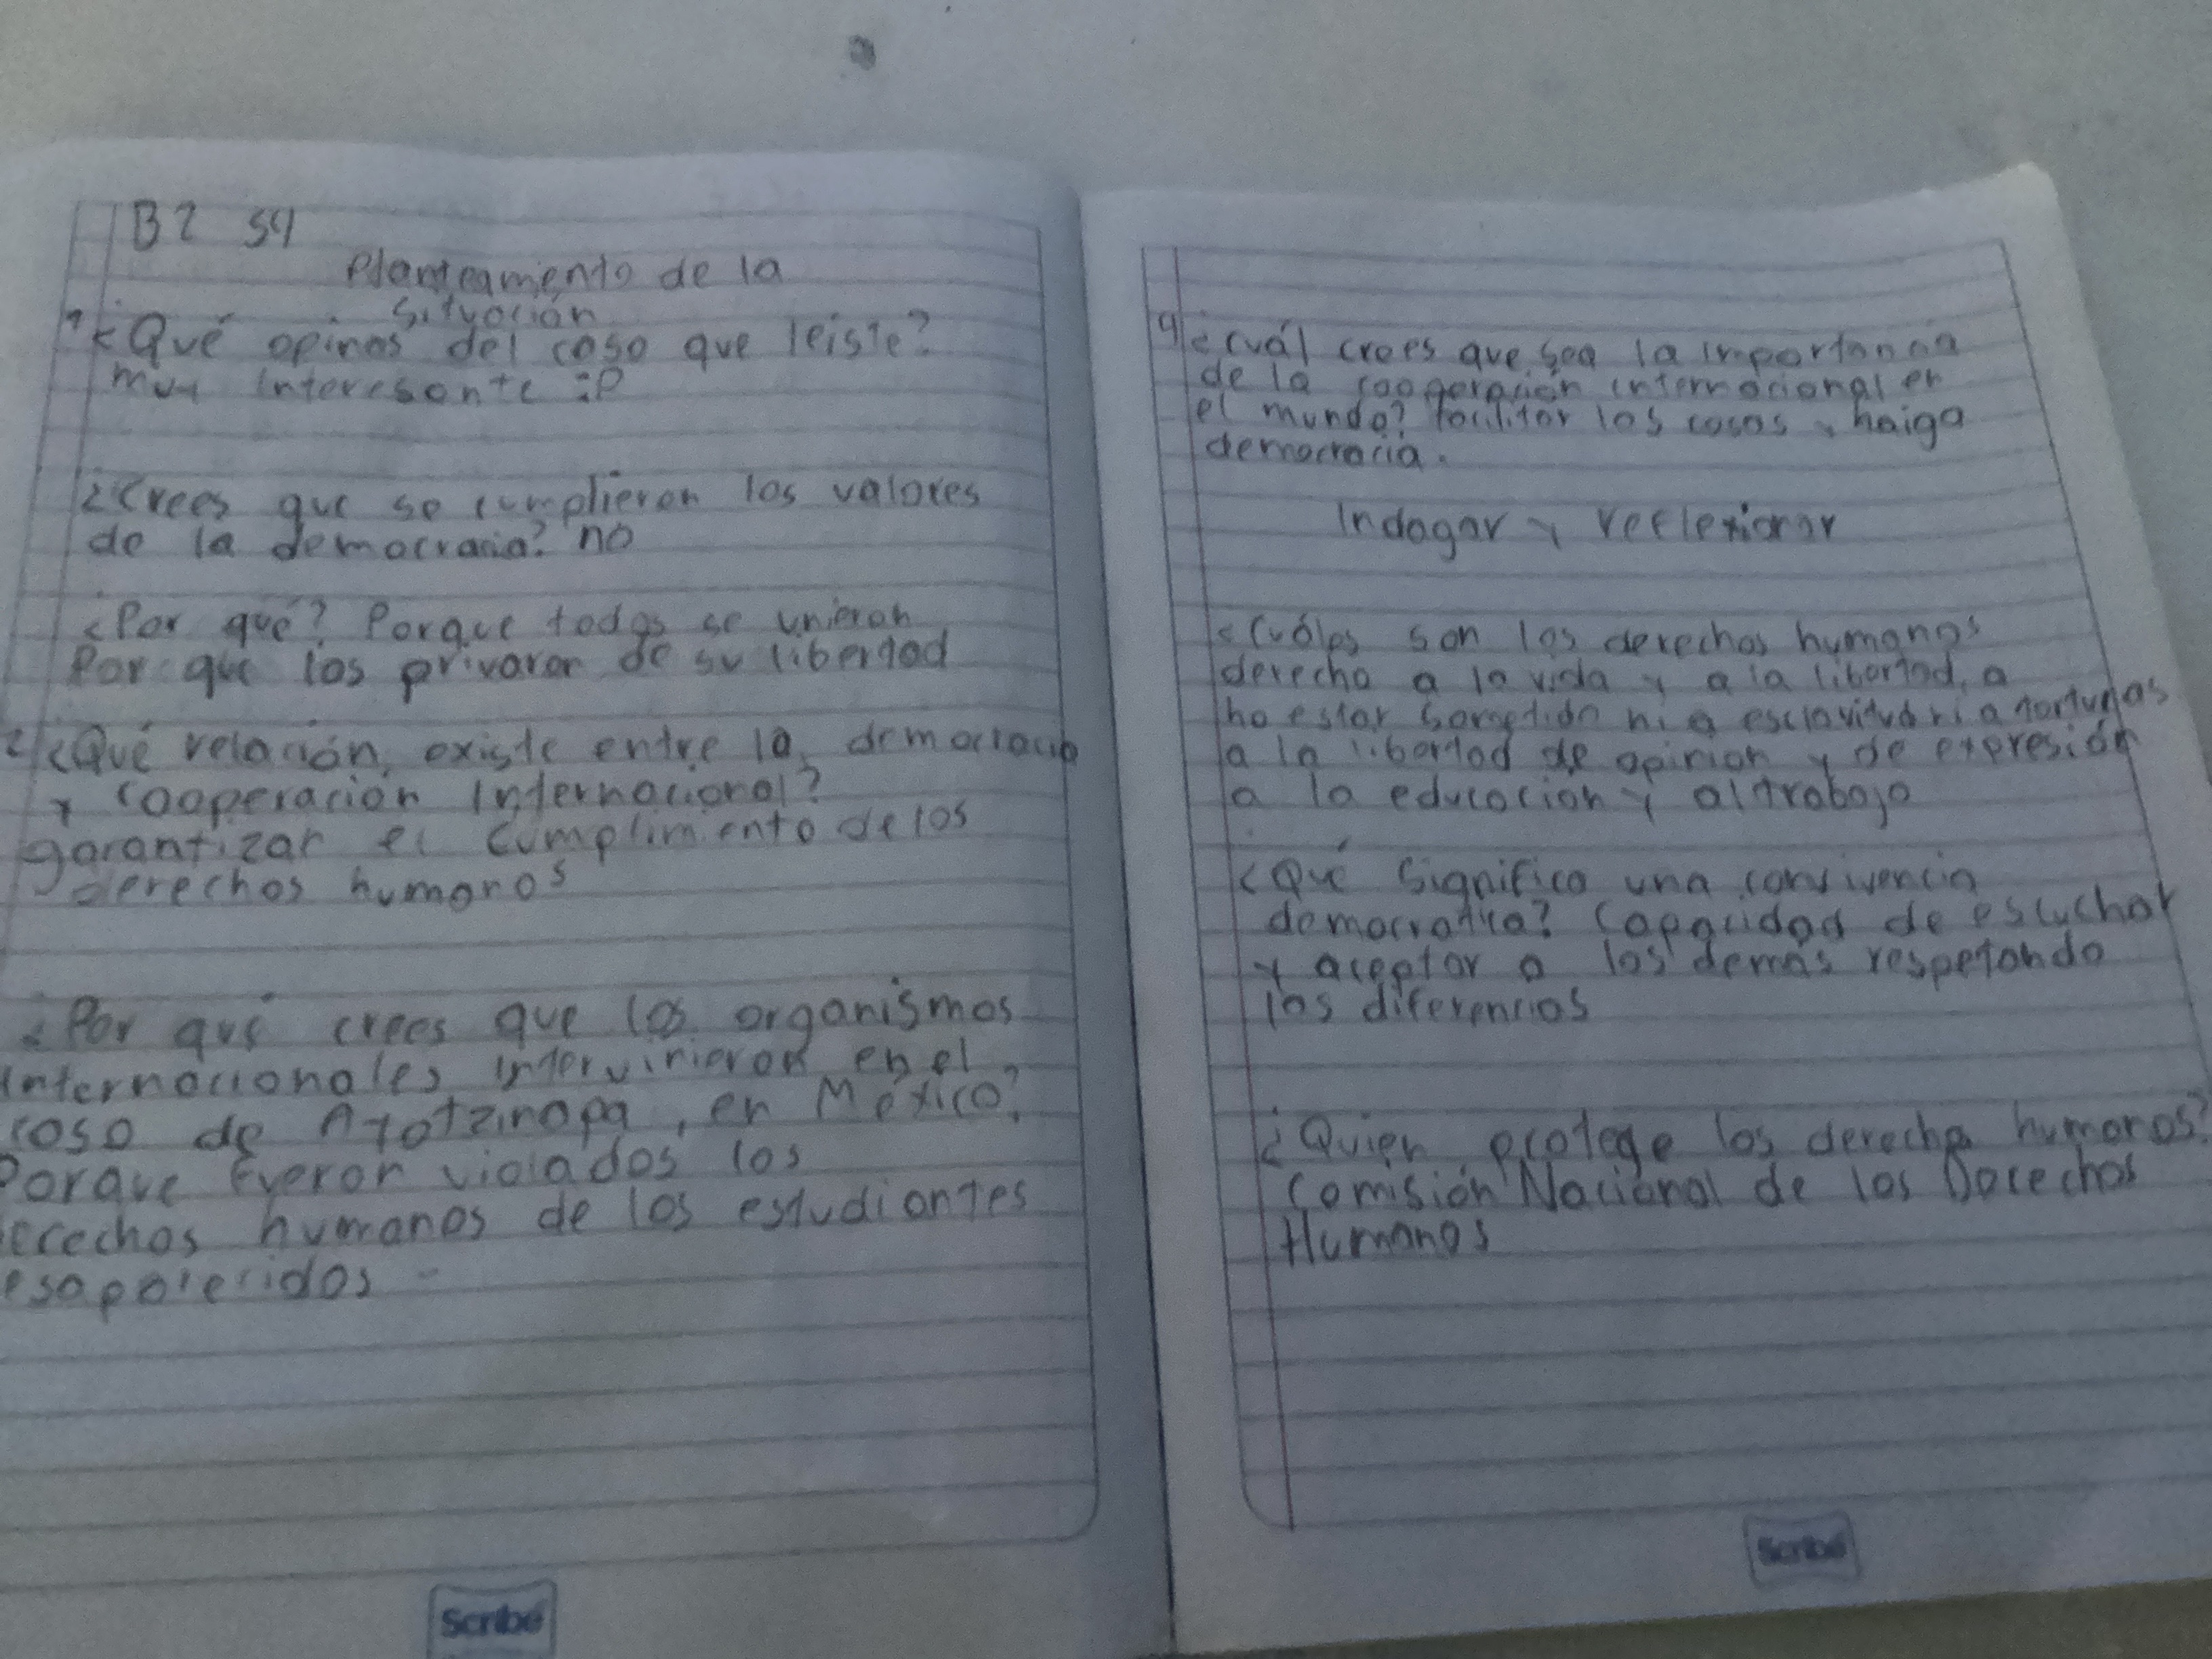 B2 S4
Planteamiento de la
situación
1 ¿Qué opinas del caso que leiste?
muy interesante :P
¿Crees que se cumplieron los valores
de la democracia? no
¿Por qué? Porque todos se unieron
Por que los privaron de su libertad
2 ¿Qué relación existe entre la democracia
y cooperación Internacional?
garantizar el cumplimiento de los
derechos humanos
¿Por qué crees que los organismos
internacionales intervinieron en el
caso de Ayotzinapa, en México?
Porque fueron violados los
erechos humanos de los estudiantes
esaparecidos
4 ¿cuál crees que sea la importancia
de la cooperación internacional en
el mundo? facilitar las cosas y haiga
democracia.
Indagar y reflexionar
¿Cuáles son los derechos humanos
derecho a la vida y a la libertad, a
no estar sometido ni a esclavitud ni a torturas
a la libertad de opinion y de expresión
a la educacion y al trabajo
¿Qué significa una convivencia
democratica? Capacidad de escuchar
y aceptar a los demás respetando
las diferencias
¿Quien protege los derecho humanos?
Comisión Nacional de los Derechos
Humanos
Scribe
Scribe